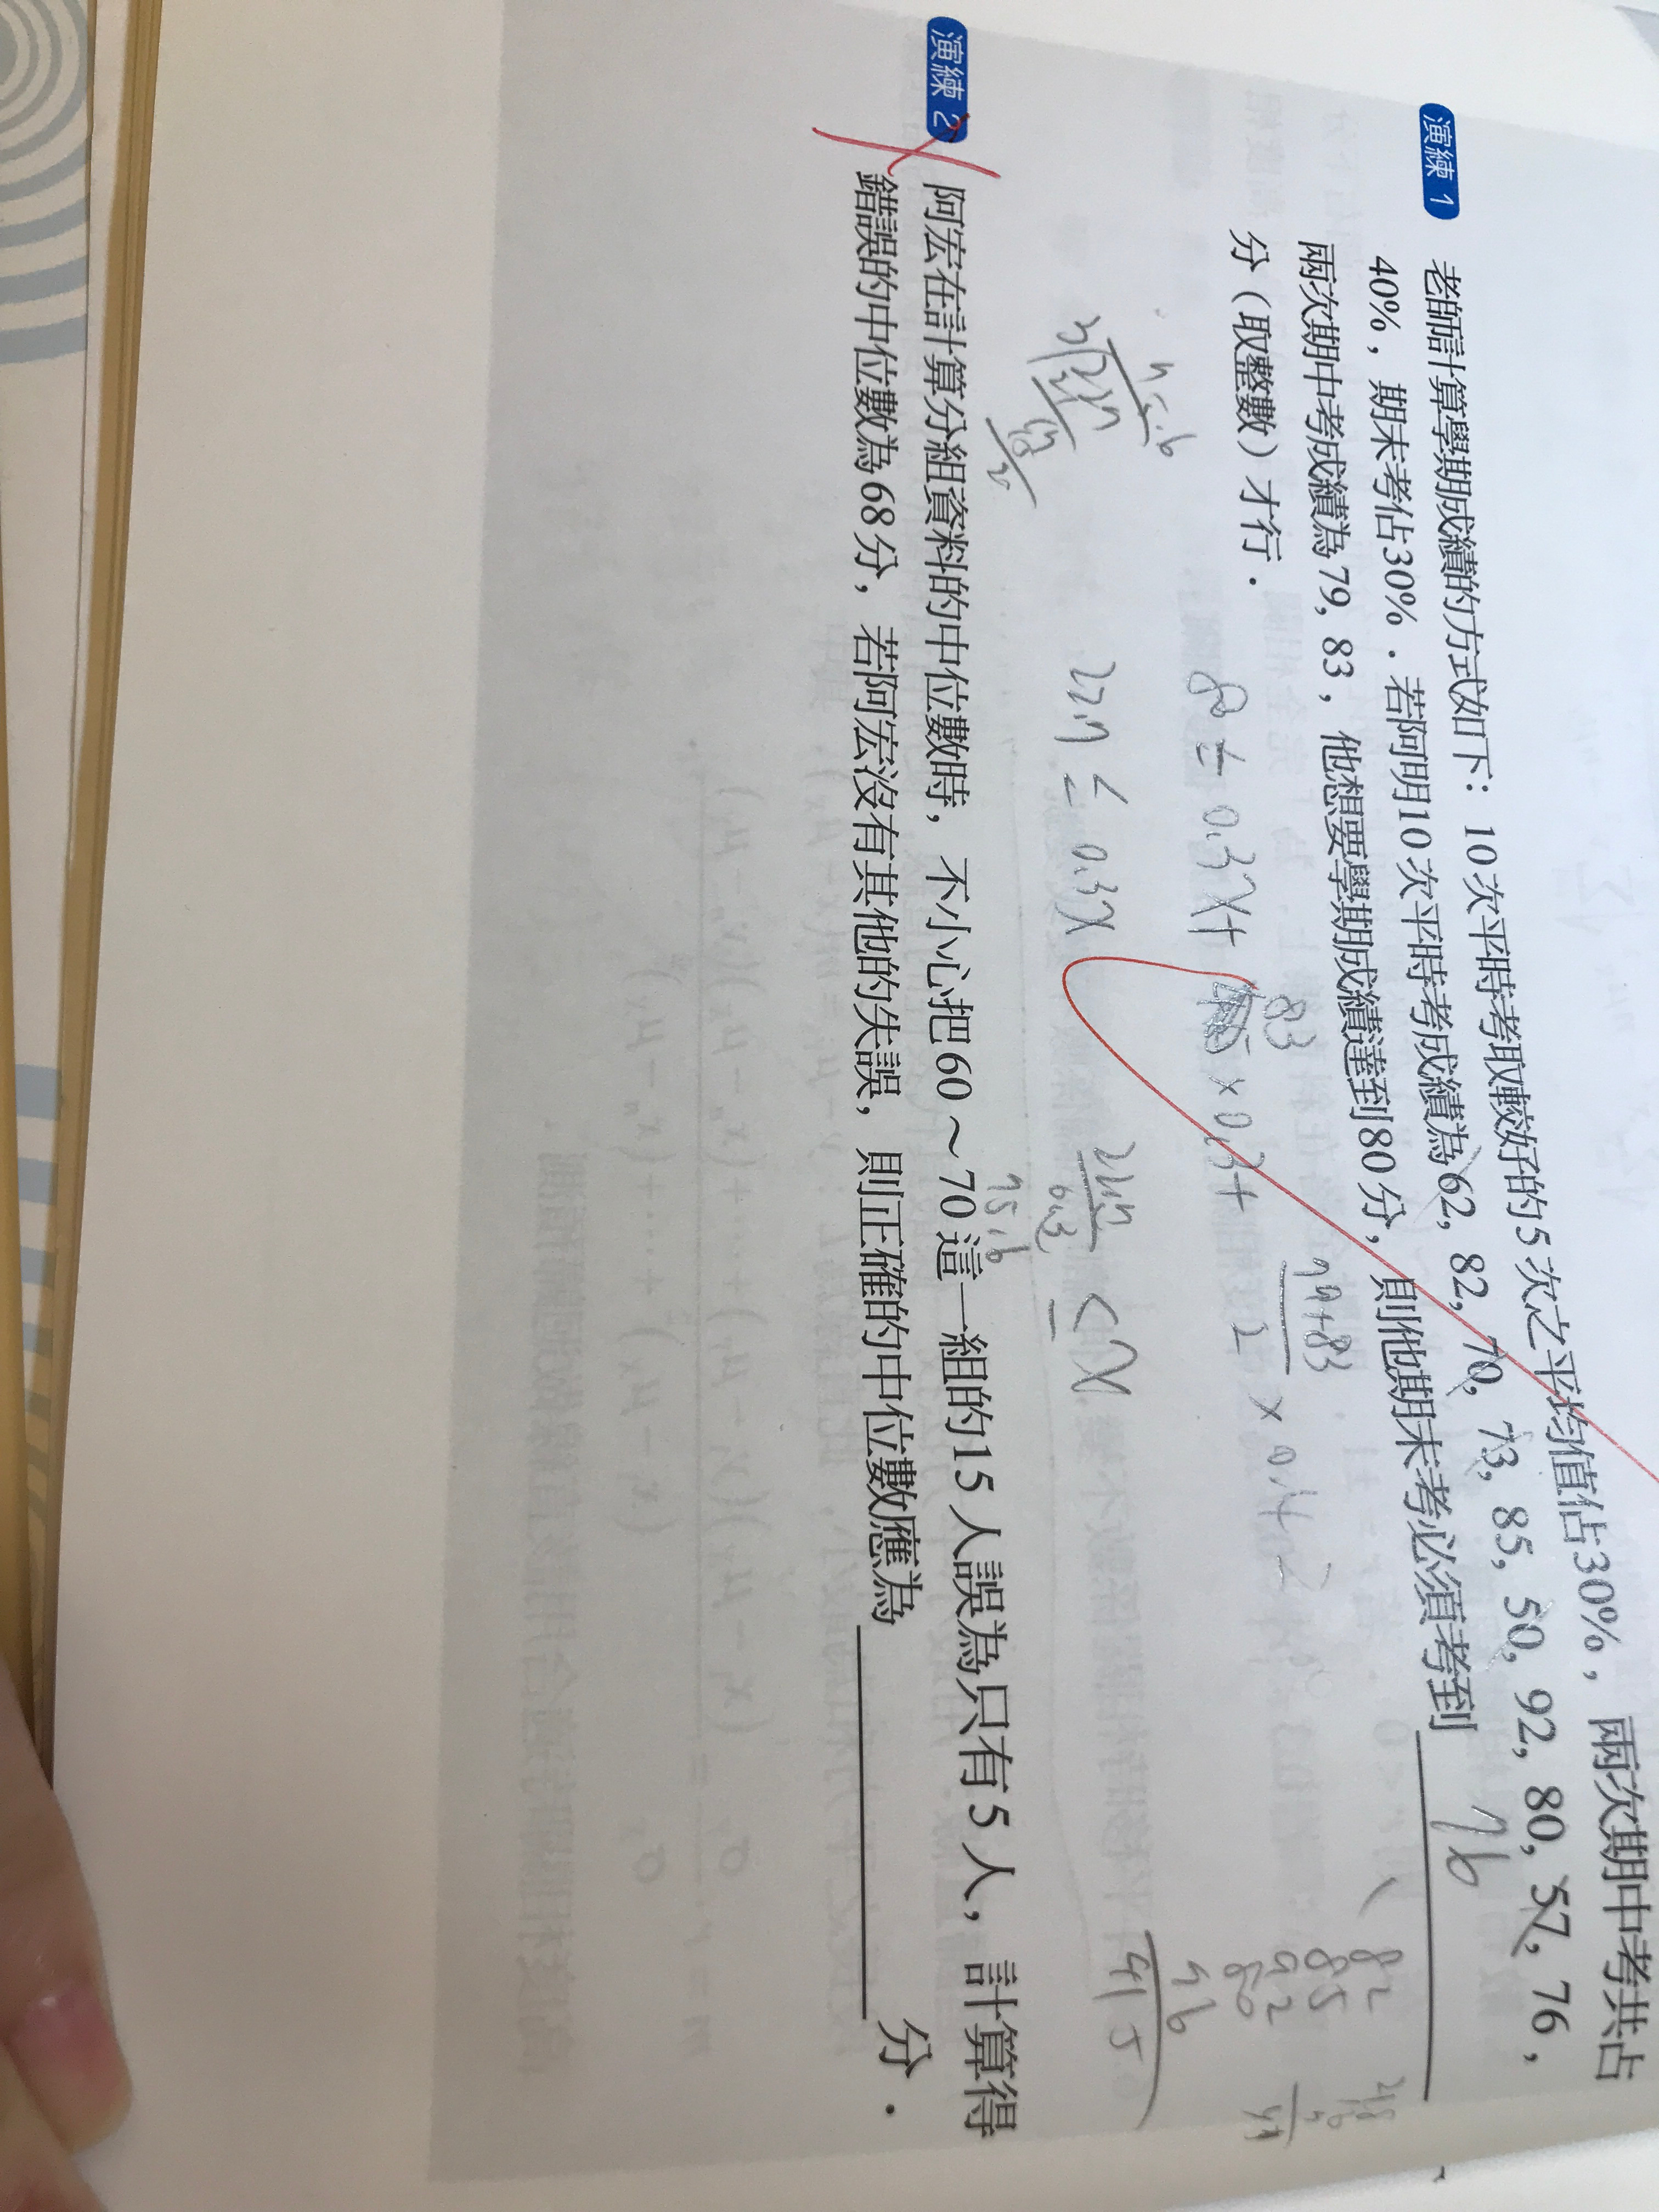 演練 1 老師計算學期成績的方式如下：10次平時考取較好的5次之平均值佔30%，兩次期中考共占
40%，期末考佔30%．若阿明10次平時考成績為62, 82, 70, 73, 85, 50, 92, 80, 57, 76，
兩次期中考成績為79, 83，他想要學期成績達到80分，則他期末考必須考到 76
分（取整數）才行．
82
85
92
80
76
415
83
79+83
2
80 ≤ 0.3x+ × 0.3+ × 0.4
0.3x
0.3
≤ x
75.6
演練 2 阿宏在計算分組資料的中位數時，不小心把60～70這一組的15人誤為只有5人，計算得
錯誤的中位數為68分，若阿宏沒有其他的失誤，則正確的中位數應為 分．